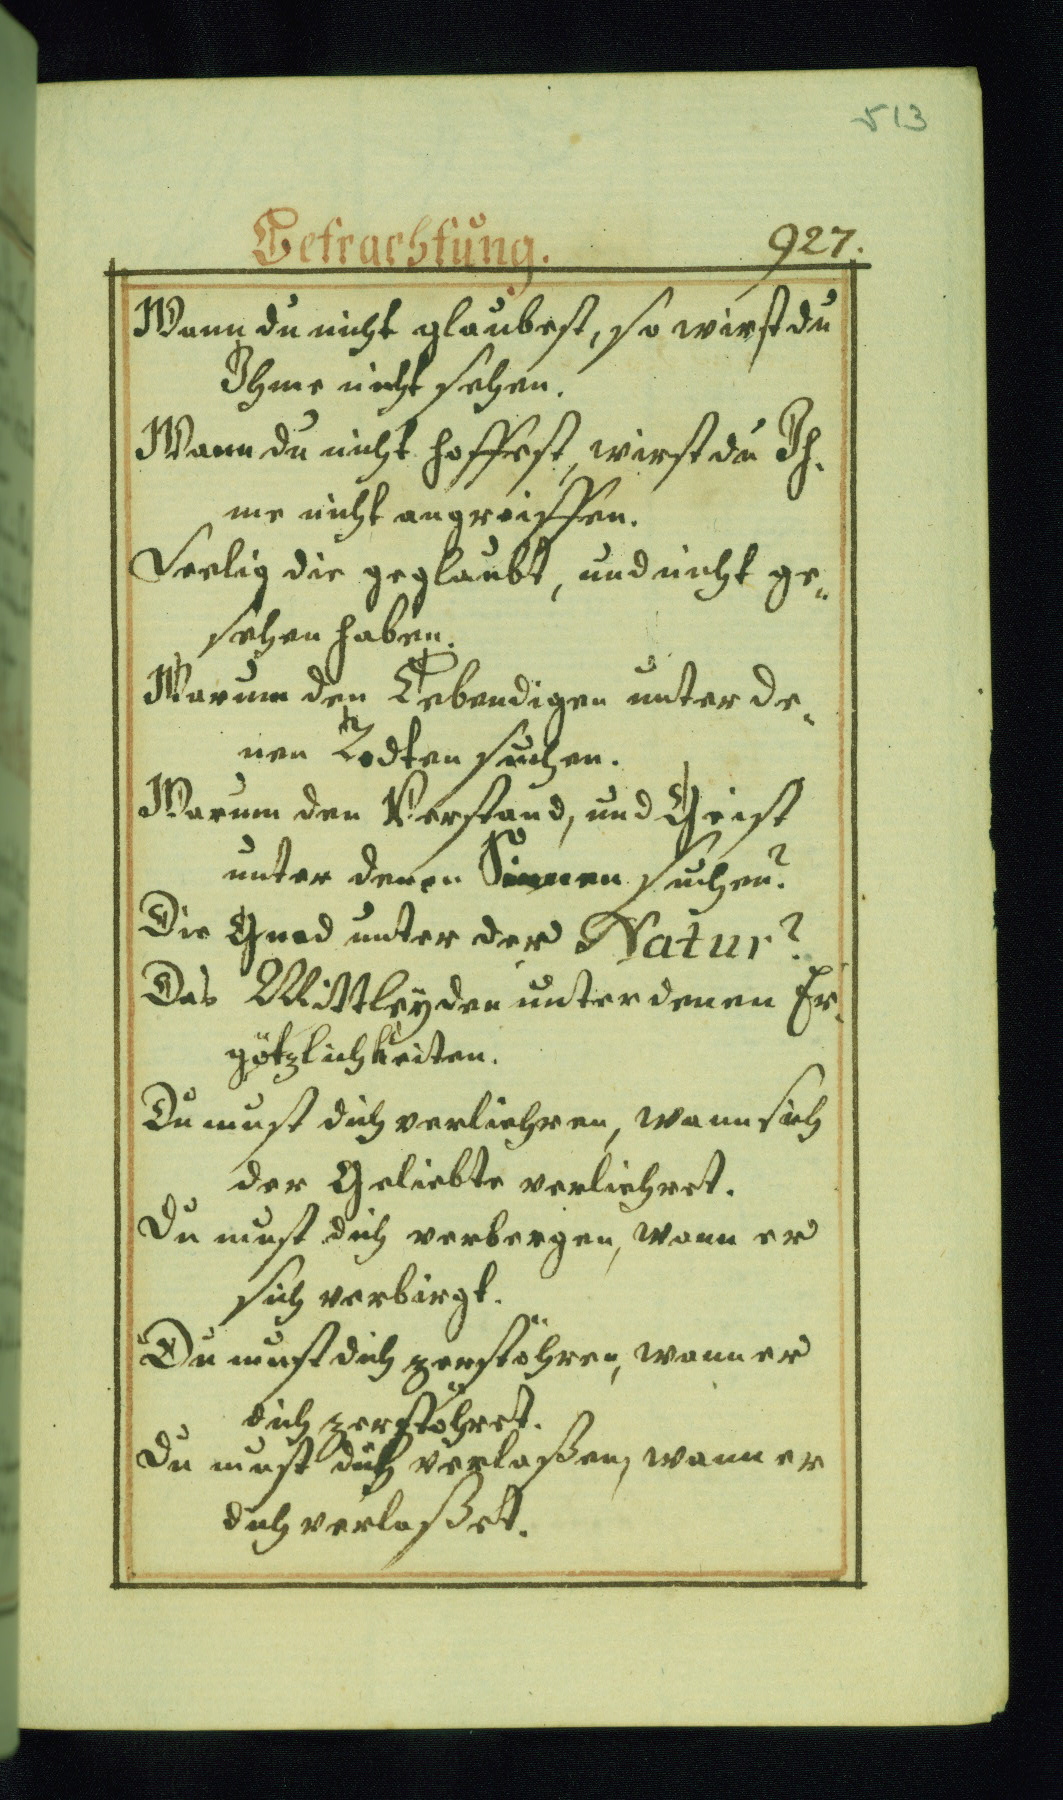 513
Betrachtung. 927.
Wann du nicht glaubest, so wirst du
Ihme nicht sehen.
Wann du nicht hoffest, wirst du Ih-
me nicht angreiffen.
Seelig die geglaubt, und nicht ge-
sehen haben.
Warum den Lebendigen unter de-
nen Todten suchen.
Warum den Verstand, und Geist
unter denen Sinnen suchen?
Die Gnad unter der Natur?
Das Mittleÿden unter denen Er-
götzlichkeiten.
Du must dich verliehren, wann sich
der Geliebte verliehret.
Du must dich verbergen, wann er
sich verbirgt.
Du must dich zerstöhren, wann er
dich zerstöhret.
Du must dich verlaßen, wann er
dich verlaßet.